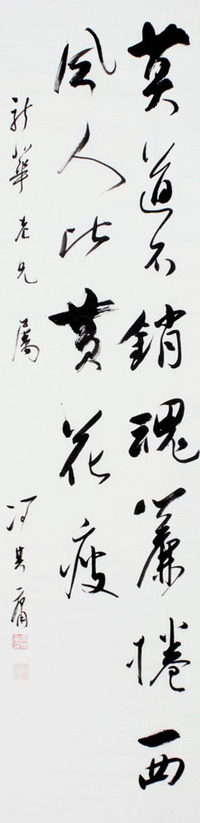 莫道不銷魂簾捲西
風人比黄花瘦
新華老兄屬
冯其庸